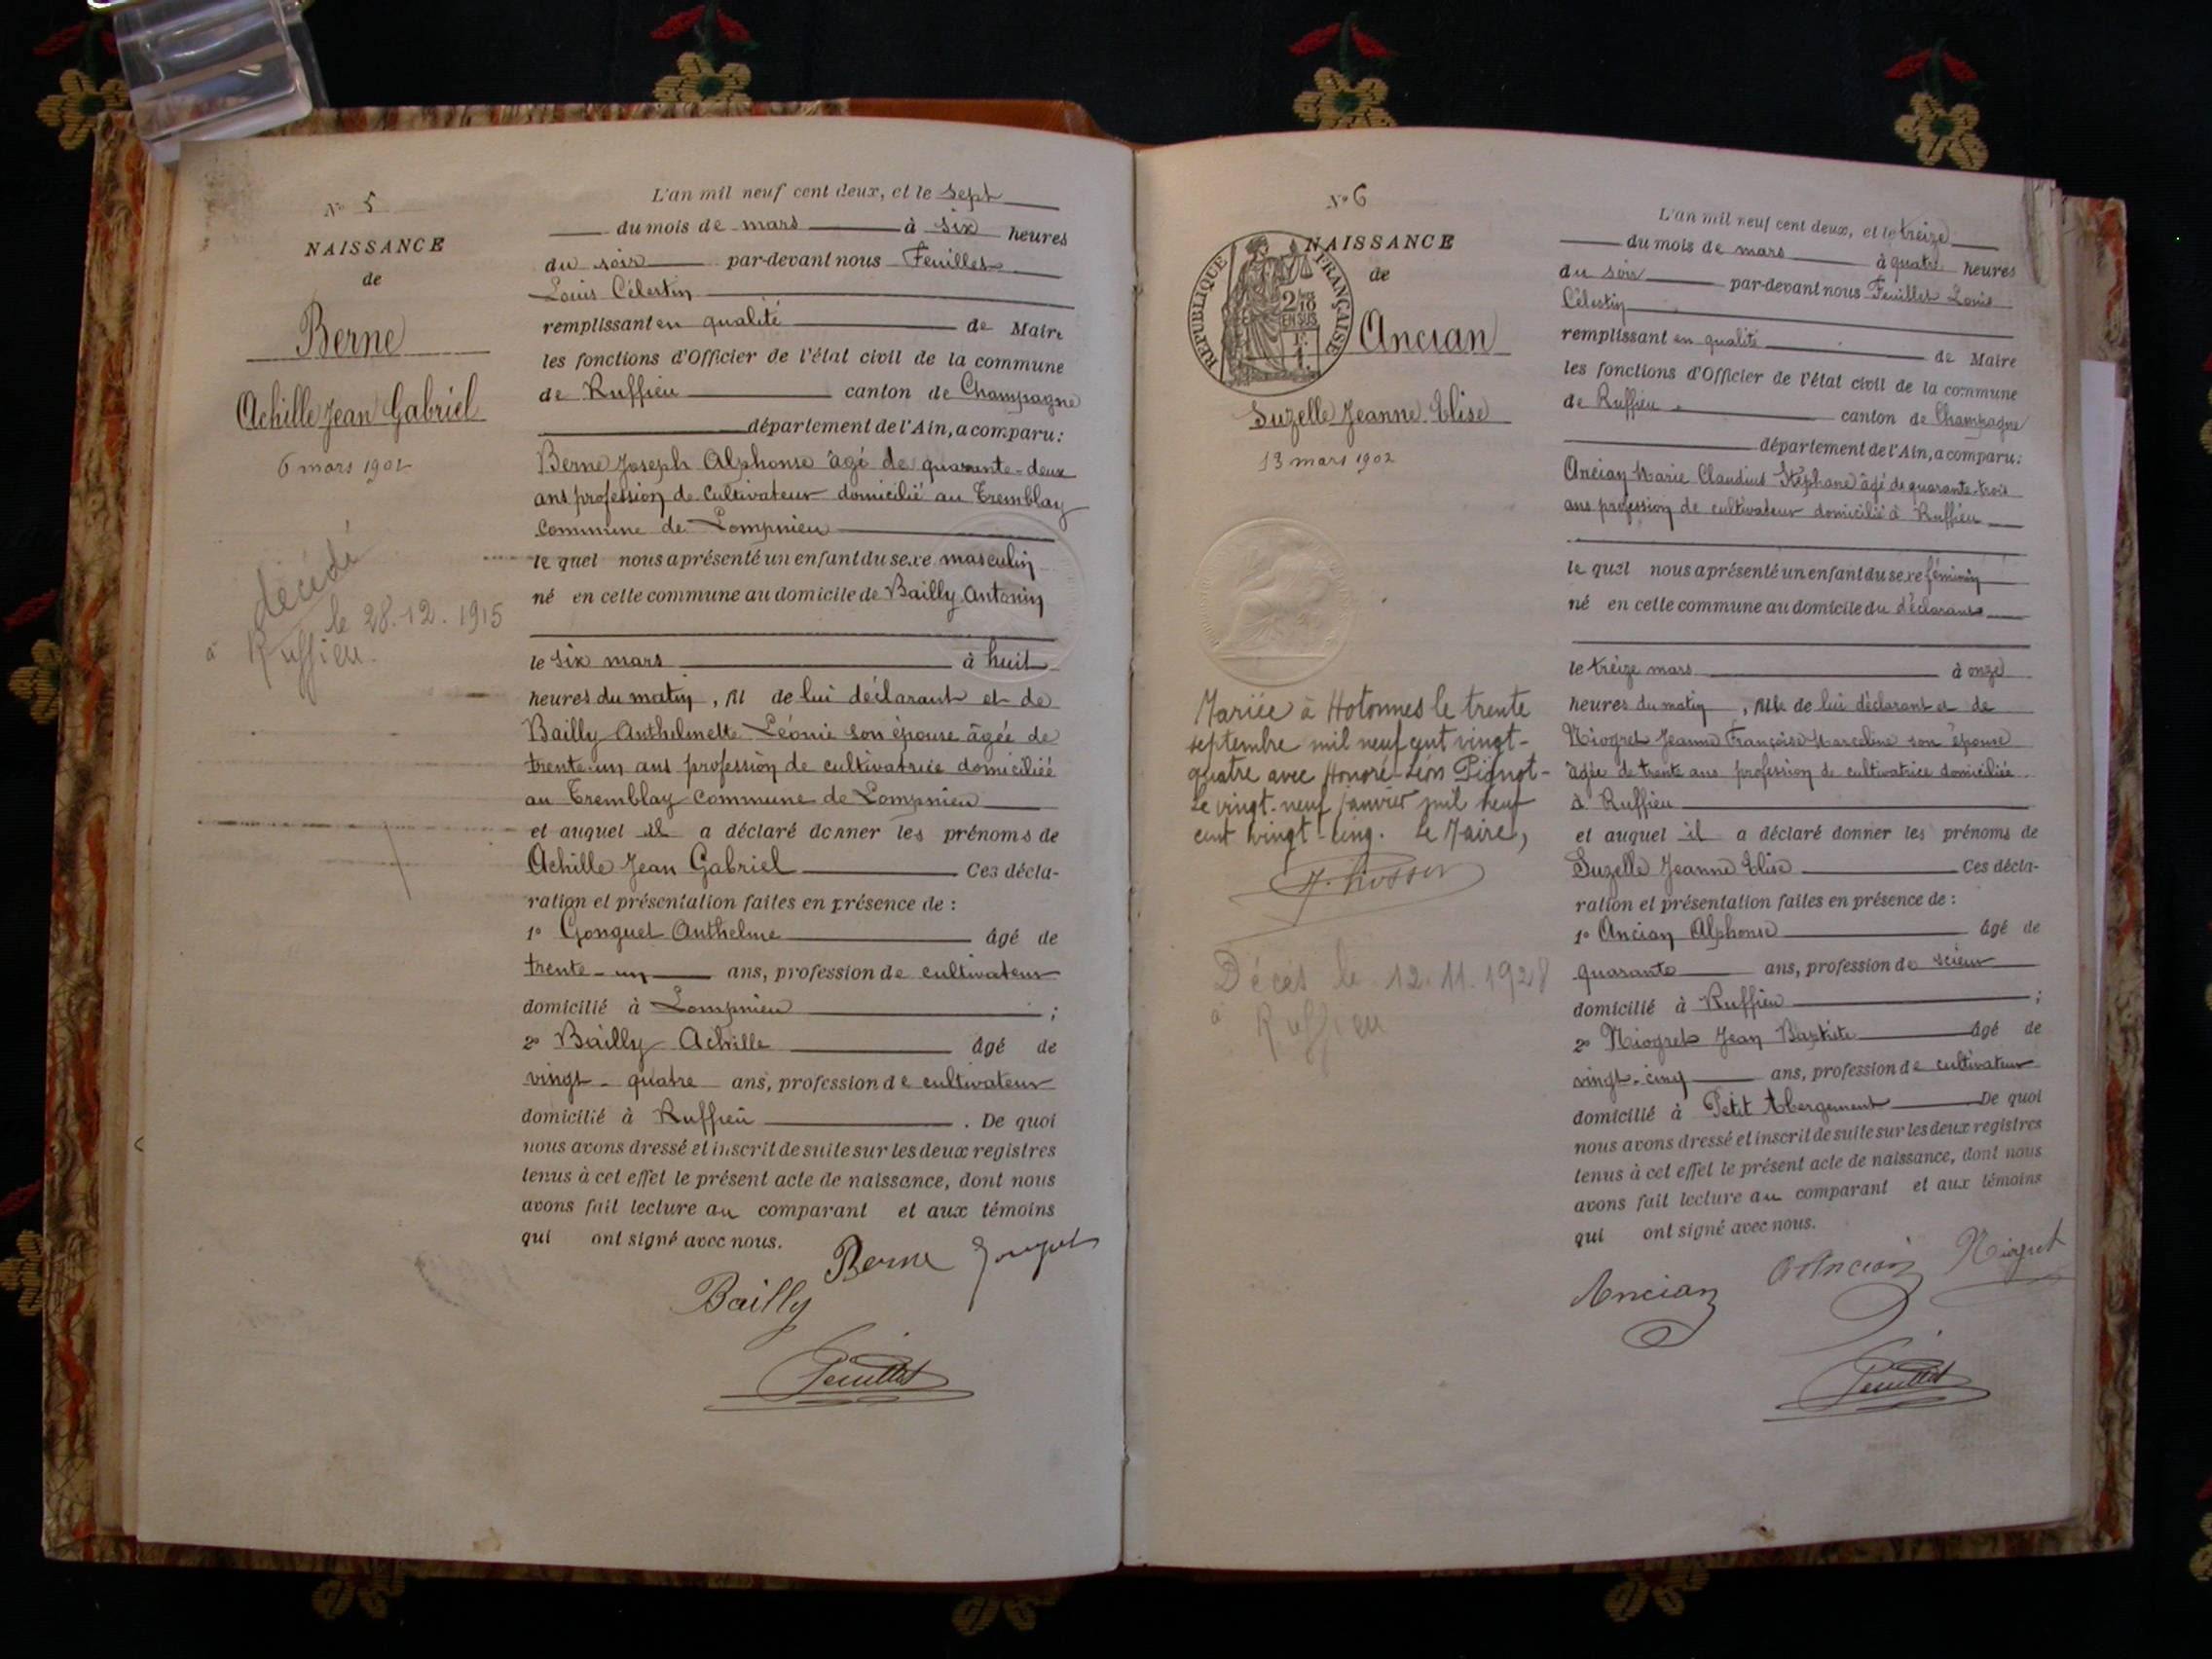 N° 5
NAISSANCE
de
Berne
Achille Jean Gabriel
6 mars 1902
décédé
le 28.12.1915
à Ruffieu.
L'an mil neuf cent deux, et le sept
du mois de mars à six heures
du soir par-devant nous Feuillet
Louis Célestin
remplissant en qualité de Maire
les fonctions d'Officier de l'état civil de la commune
de Ruffieu canton de Champagne
département de l'Ain, a comparu:
Berne Joseph Alphonse âgé de quarante-deux
ans profession de cultivateur domicilié au Tremblay
commune de Lompnieu
le quel nous a présenté un enfant du sexe masculin
né en cette commune au domicile de Bailly Antonin
le six mars à huit
heures du matin, fil de lui déclarant et de
Bailly Anthelmette Léonie son épouse âgée de
trente-un ans profession de cultivatrice domiciliée
au Tremblay commune de Lompnieu
et auquel il a déclaré donner les prénoms de
Achille Jean Gabriel Ces décla-
ration et présentation faites en présence de :
1° Gonguet Anthelme âgé de
trente-un ans, profession de cultivateur
domicilié à Lompnieu ;
2° Bailly Achille âgé de
vingt-quatre ans, profession de cultivateur
domicilié à Ruffieu . De quoi
nous avons dressé et inscrit de suite sur les deux registres
tenus à cet effet le présent acte de naissance, dont nous
avons fait lecture au comparant et aux témoins
qui ont signé avec nous.
Berne Gonguet
Bailly
Feuillet
N° 6
NAISSANCE
de
REPUBLIQUE FRANÇAISE
2/10
EN SUS
Ancian
Suzelle Jeanne Elise
13 mars 1902
Mariée à Hotonnes le trente
septembre mil neuf cent vingt-
quatre avec Honoré-Léon Pignot-
Le vingt-neuf janvier mil neuf
cent vingt-cinq. Le Maire,
Décès le 12.11.1928
à Ruffieu
L'an mil neuf cent deux, et le treize
du mois de mars à quatre heures
du soir par-devant nous Feuillet Louis
Célestin
remplissant en qualité de Maire
les fonctions d'Officier de l'état civil de la commune
de Ruffieu canton de Champagne
département de l'Ain, a comparu:
Ancian Marie Claudius Stéphane âgé de quarante-trois
ans profession de cultivateur domicilié à Ruffieu
le quel nous a présenté un enfant du sexe féminin
né en cette commune au domicile du déclarant
le treize mars à onze
heures du matin, fille de lui déclarant et de
Niogret Jeanne Françoise Marceline son épouse
âgée de trente ans profession de cultivatrice domiciliée
à Ruffieu
et auquel il a déclaré donner les prénoms de
Suzelle Jeanne Elise Ces décla-
ration et présentation faites en présence de :
1° Ancian Alphonse âgé de
quarante ans, profession de scieur
domicilié à Ruffieu ;
2° Niogret Jean Baptiste âgé de
vingt-cinq ans, profession de cultivateur
domicilié à Petit Abergement De quoi
nous avons dressé et inscrit de suite sur les deux registres
tenus à cet effet le présent acte de naissance, dont nous
avons fait lecture au comparant et aux témoins
qui ont signé avec nous.
Ancian A Ancian Niogret
Feuillet